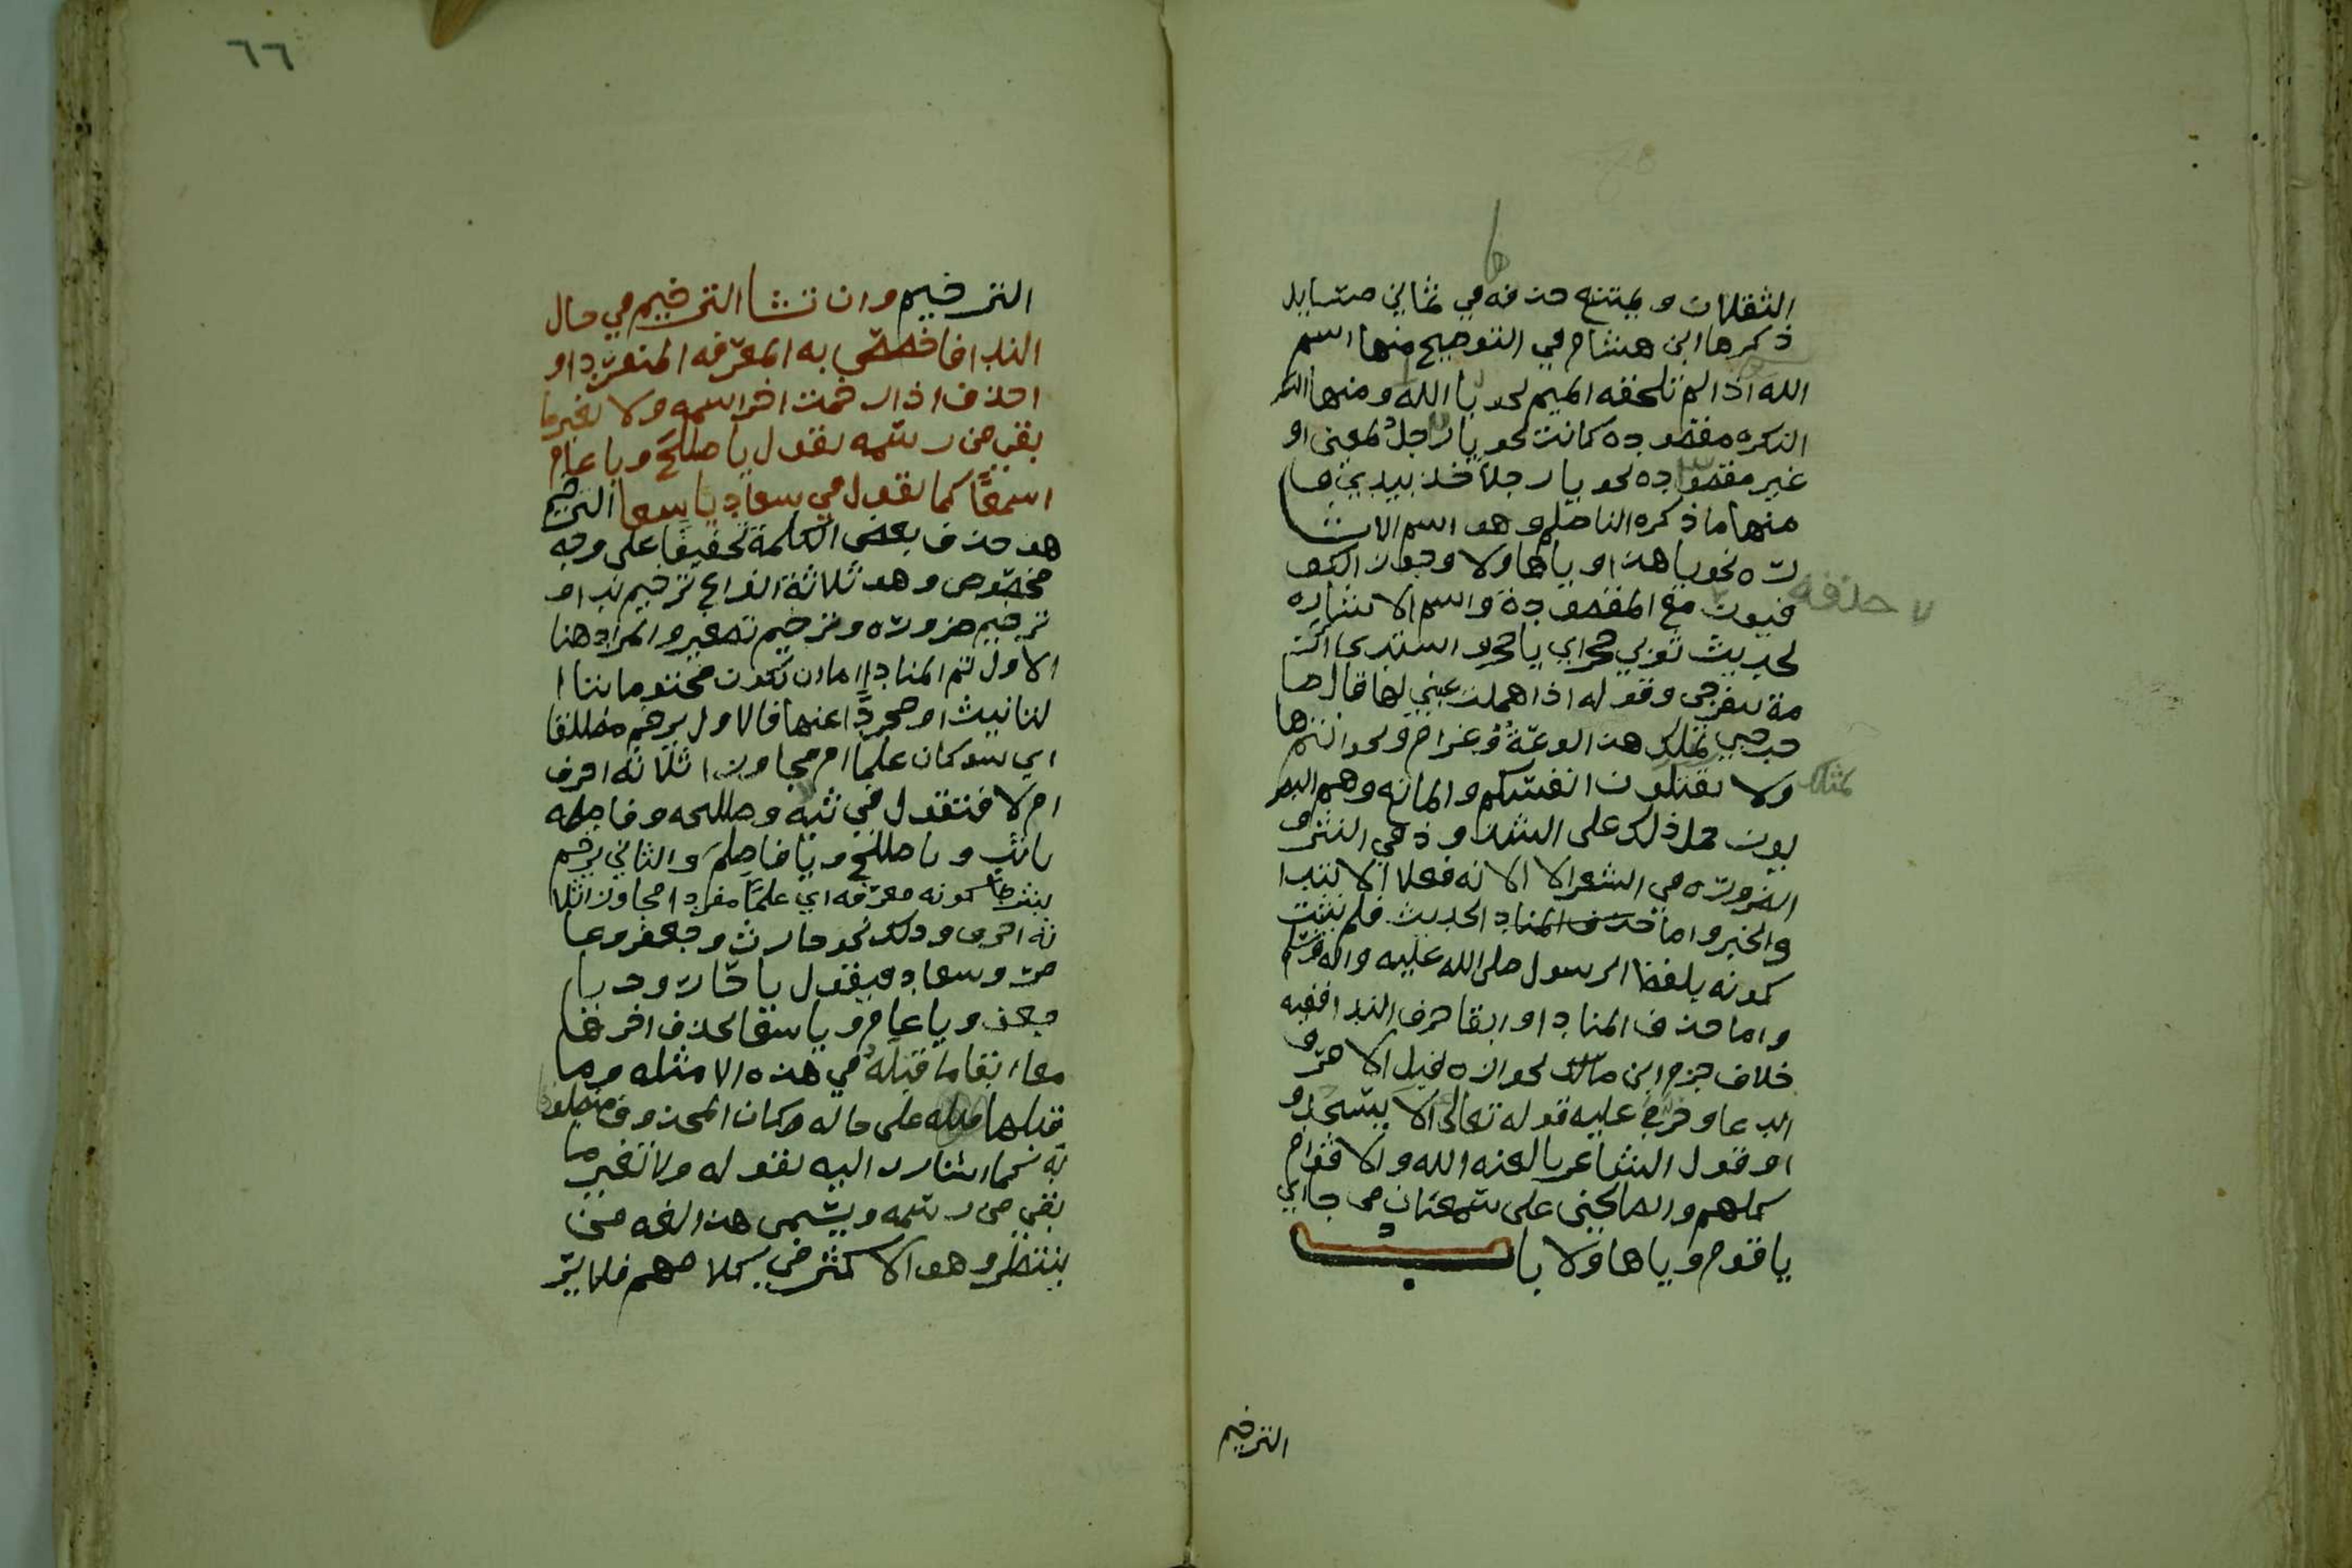 الثقلان ويمتنع حذفه في ثماني مسايل
ذكرها ابن هشام في التوضيح منها اسم
الله اذا لم تلحقه الميم نحو يا الله ومنها اسم
النكره مقصوده كانت نحو يا رجل لمعين او
غير مقصوده نحو يا رجلا خذ بيدي وها
منها ما ذكره الناظم وهو اسم الاشا
ره نحو يا هذا او ياها ولا وجوز الكو
فيون مع المقصوده واسم الاشاره
حذفه
لحديث ثوبي حجر اي يا حجر واشتدي از
مة تنفرجي وقوله اذا هملت عيني لها قال صا
حبي بمثلك هذا لوعة وغرام ونحو انتم ها
ولا تقتلون انفسكم والمانع وهم البصر
بمثلك
يون حمل ذلك على الشذوذ في النثر و
الضروره في الشعر الا الايه فعلى الابتدا
والخبر واما حذف المناد الحديث فلم يثبت
كونه بلفظ الرسول صلى الله عليه واله وسلم
واما حذف المنادا وابقا حرف الندا ففيه
خلاف جزم ابن مالك بجوازه قبل الامر و
الدعا وخرج عليه قوله تعالى الا يسجدو
او قول الشاعر يا لعنه الله والاقوام
كلهم والصالحين على سمعان من جار اي
يا قوم وياها ولا باب
الترخيم
٦٦
الترخيم وان تشا الترخيم في حال
الندا فاخصص به المعرفه المنفردا و
احذف اذا رخمت اخر اسمه ولا تغير ما
بقي من رسمه تقول يا طلح ويا عام
اسمعا كما تقول في سعاد يا سعا الترخيم
هو حذف بعض الكلمة تخفيفا على وجه
مخصوص وهو ثلاثة انواع ترخيم ندا و
ترخيم ضروره وترخيم تصغير والمراد هنا
الاول ثم المنادا اما ان تكون مختوما بتا ا
لتانيث او مجردا عنها فالاول يرخم مطلقا
اي سوا كان علما ام مجاوزا ثلاثه احرف
ام لا فتقول في ثبه وطلحه وفاطمه
يا ثب ويا طلح ويا فاطم والثاني يرخم
بشرط كونه معرفه اي علما مفردا مجاوزا ثلا
ثه احرف وذلك نحو حارث وجعفر وعا
مر وسعاد فيقول يا حار و يا
جعف ويا عام ويا سعا بحذف اخرها
مع ابقا ما قبله في هذه الامثله وما
قبلها على حاله وكان المحذوف ملفوظا
به كما اشار اليه بقوله ولا تغير ما
بقي من رسمه ويسمى هذا لغه من
ينتظر وهو الاكثر في كلامهم فلا يتر